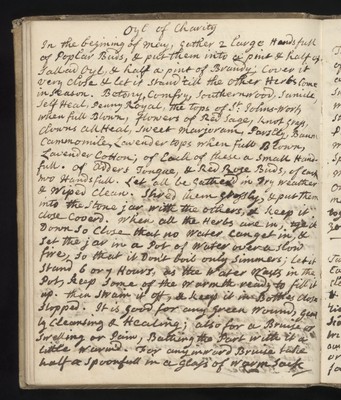 Oyl of Charity
In the begining of May, gather 2 Large Handsfull
of Poplar Buds, & put them into a pint & half of
Sallad Oyl, & half a pint of Brandy; Cover it
very Close & let it stand till the other Herbs Come
in Season. Betony, Comfry, Southernwood, Sanicle
Self Heal, Penny Royal, the tops of St. Johns-wort
when full Blown, flowers of Red Sage, knot grass,
Clowns all Heal, Sweet Marjoram, Parsly, Baum
Cammomile, Lavender tops when full Blown,
Lavender Cotton; of Each of these a Small Hand-
full: of Adders Tongue, & Red Rose Buds, of each
two Handsfull. Let all be gatherd in Dry weather
& Wiped Clean. Shred them grossly, & put them
into the Stone jar with the others, & keep it
close Coverd. When all the Herbs are in, tye it
Down So Close that no Water Can get in, &
Set the jar in a Pot of Water over a Slow
fire, So that it Don't boil only Simmers; Let it
Stand 6 or 7 Hours, as the Water Wasts in the
Pot, keep Some of the Warmth ready to fill it
up. then Strain it off, & keep it in Bottles close
Stopped. It is good for any green Wound, great
ly Cleansing & Healing; also for a Bruise or
Swelling or Pain, Bathing the Part with it a
little warmd. For any inward Bruise take
half a Spoonfull in a glass of Warm Sack